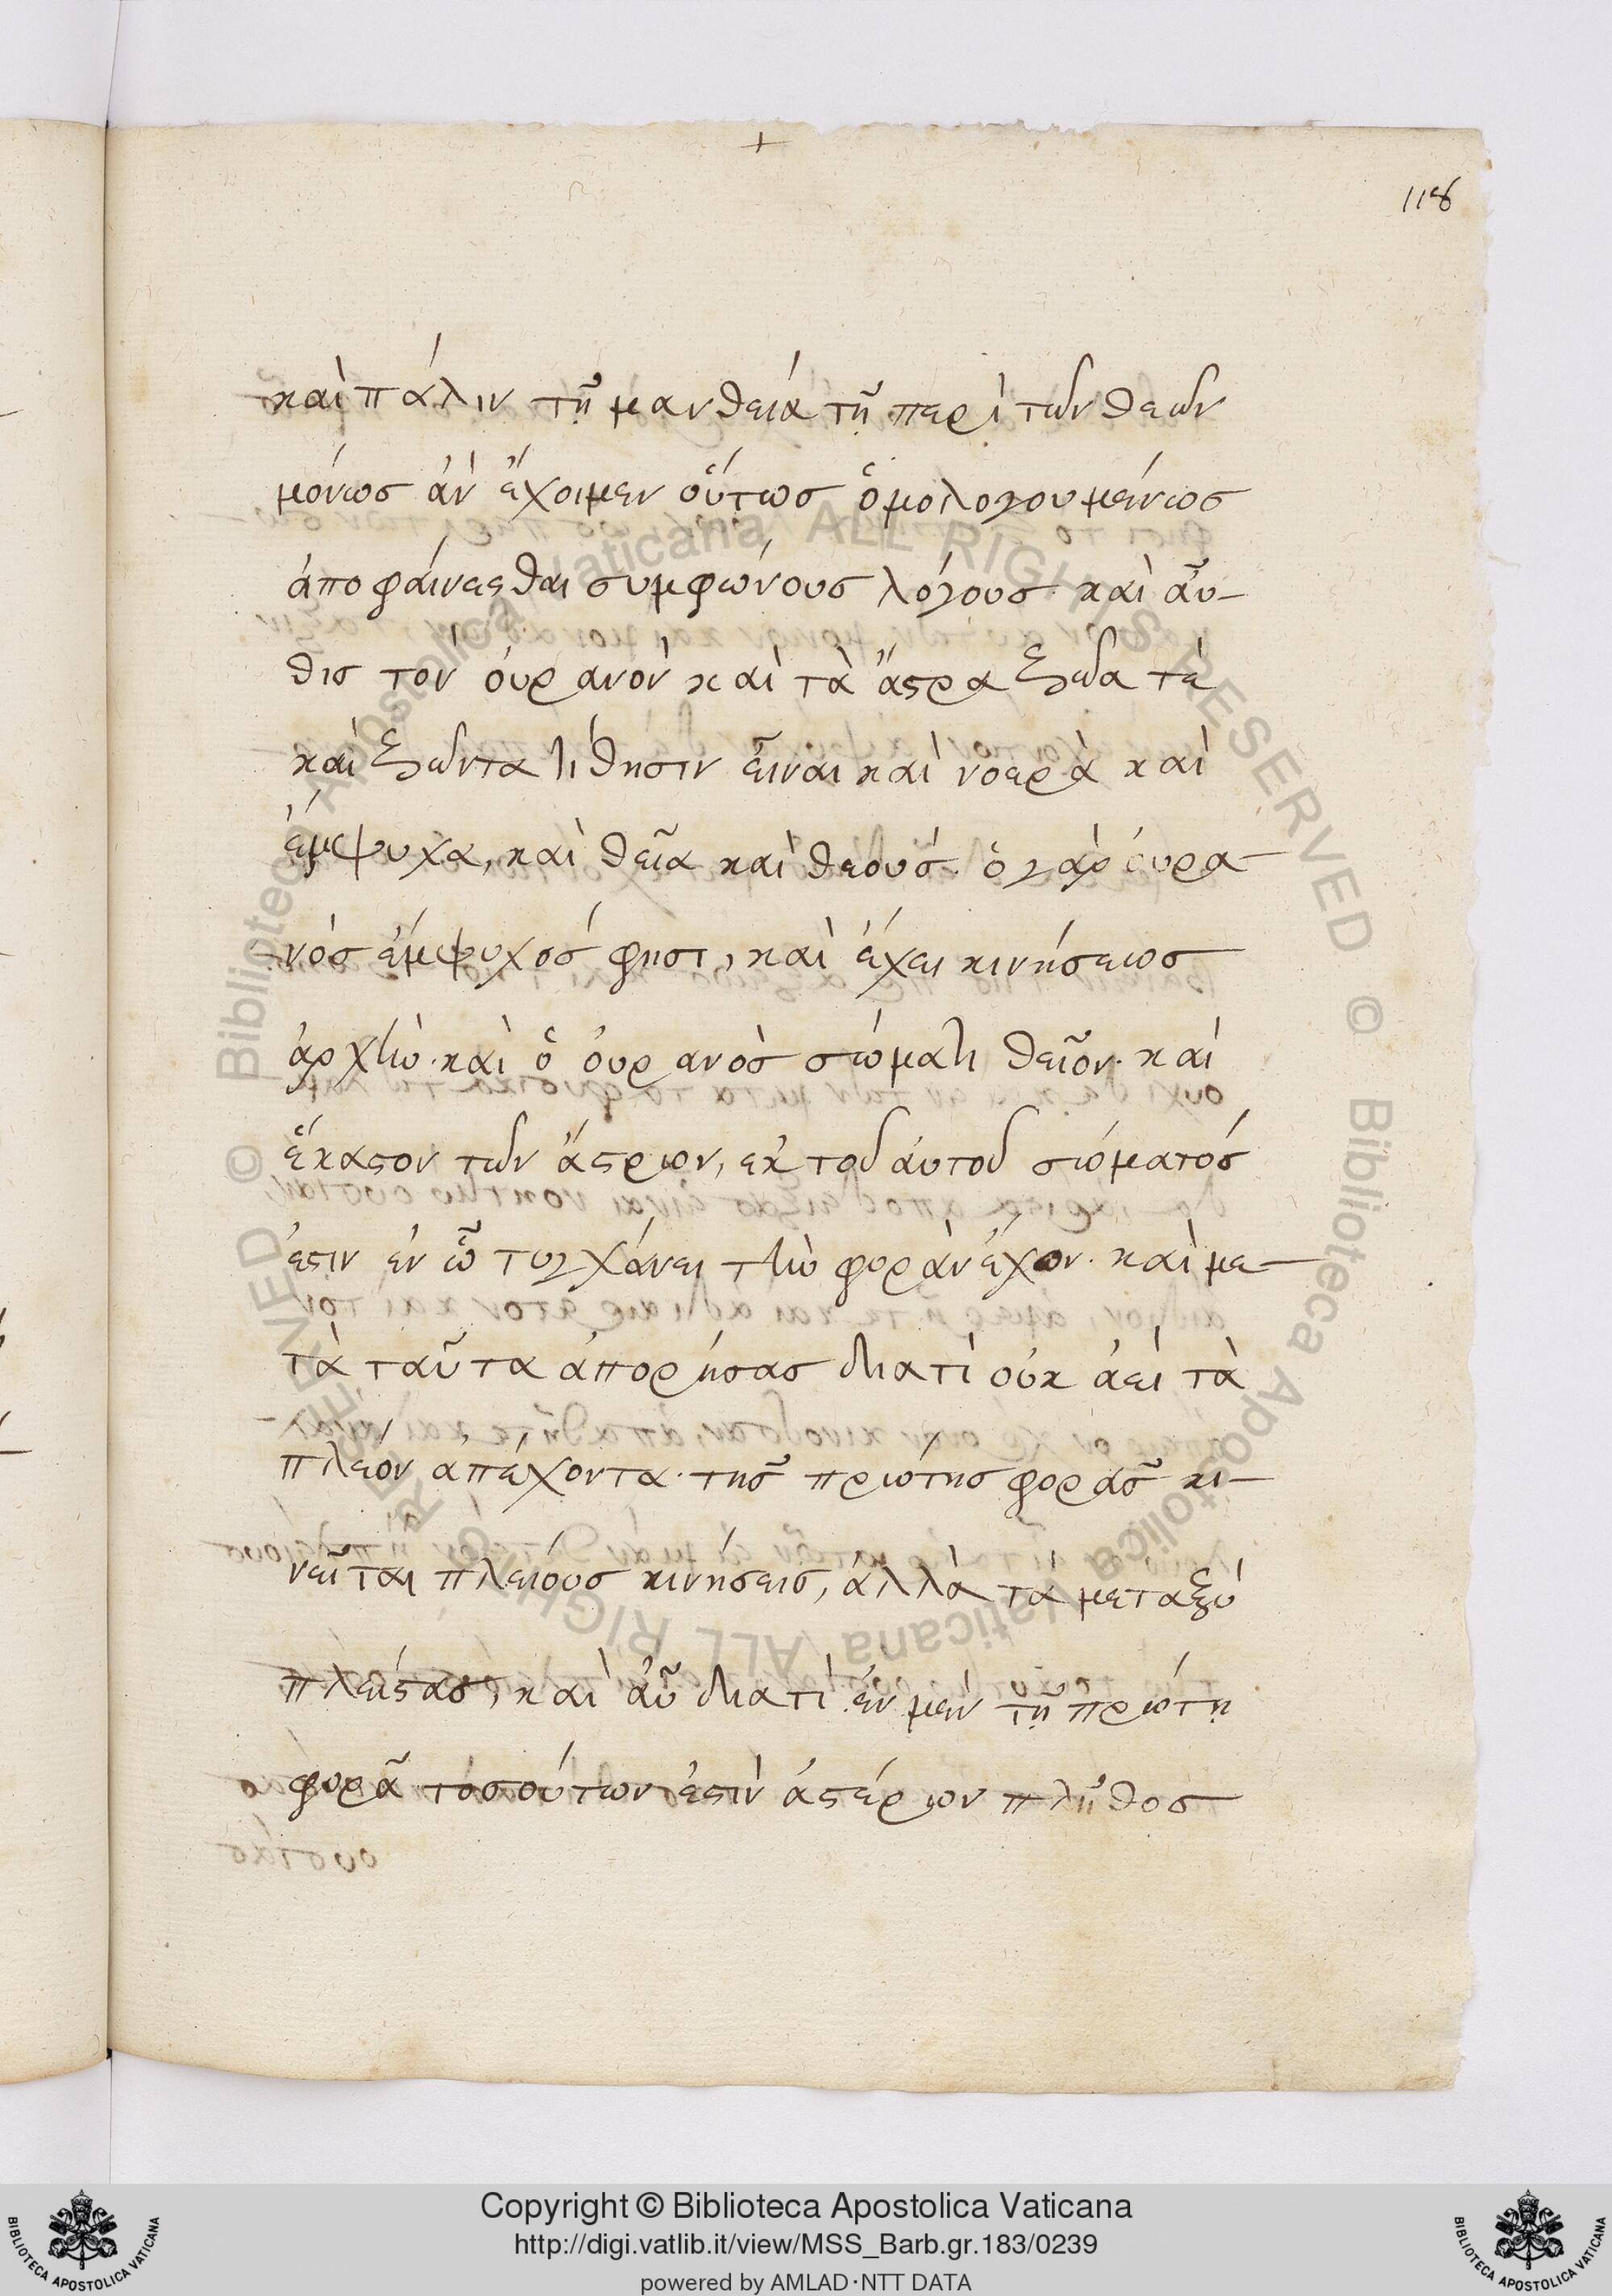 118
καὶ πάλιν τῇ μανθεία τῇ περὶ τῶν θεῶν
μόνως ἀν ἔχοιμεν οὕτως ὁμολογουμένως
ἀποφαίνεσθαι συμφώνους λόγους· καὶ αὖ-
θις τὸν ὀυρανὸν καὶ τὰ ἄστρα ζῶα τὲ
καὶ ζῶντα τίθησιν εἶναι καὶ νοερὰ καὶ
ἔμψυχα, καὶ θεῖα καὶ θεούς· ὁ γὰρ ὀυρα-
νὸς ἔμψυχός φησι, καὶ ἔχει κινήσεως
ἀρχὴν· καὶ ὁ ὀυρανὸς σώματι θεῖον· καὶ
ἕκαστον τῶν ἄστρων, ἐκ τοῦ ἀυτοῦ σώματός
ἐστιν ἐν ὧ τυγχάνει τὴν φορὰν ἔχον· καὶ με-
τὰ ταῦτα ἀπορήσας διατὶ οὐκ ἀεὶ τὰ
πλεῖον ἀπέχοντα· τῆς πρώτης φορᾶς κι-
νεῖται πλείους κινήσεις, ἀλλὰ τὰ μεταξὺ
πλείστας, καὶ αὖ διατὶ ἐν μὲν τῇ πρώτῃ
φορᾶ τοσούτων ἐστὶν ἀστέρων πλῆθος
Copyright © Biblioteca Apostolica Vaticana
http://digi.vatlib.it/view/MSS_Barb.gr.183/0239
powered by AMLAD·NTT DATA
© Biblioteca Apostolica Vaticana ALL RIGHTS RESERVED © Biblioteca Apostolica Vaticana ALL RIGHTS RESERVED
BIBLIOTECA APOSTOLICA VATICANA
BIBLIOTECA APOSTOLICA VATICANA